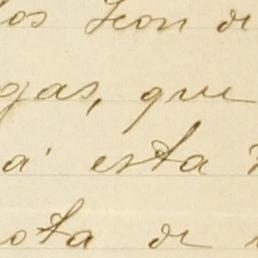 los Leon de
gas, que
a' esta
ota de